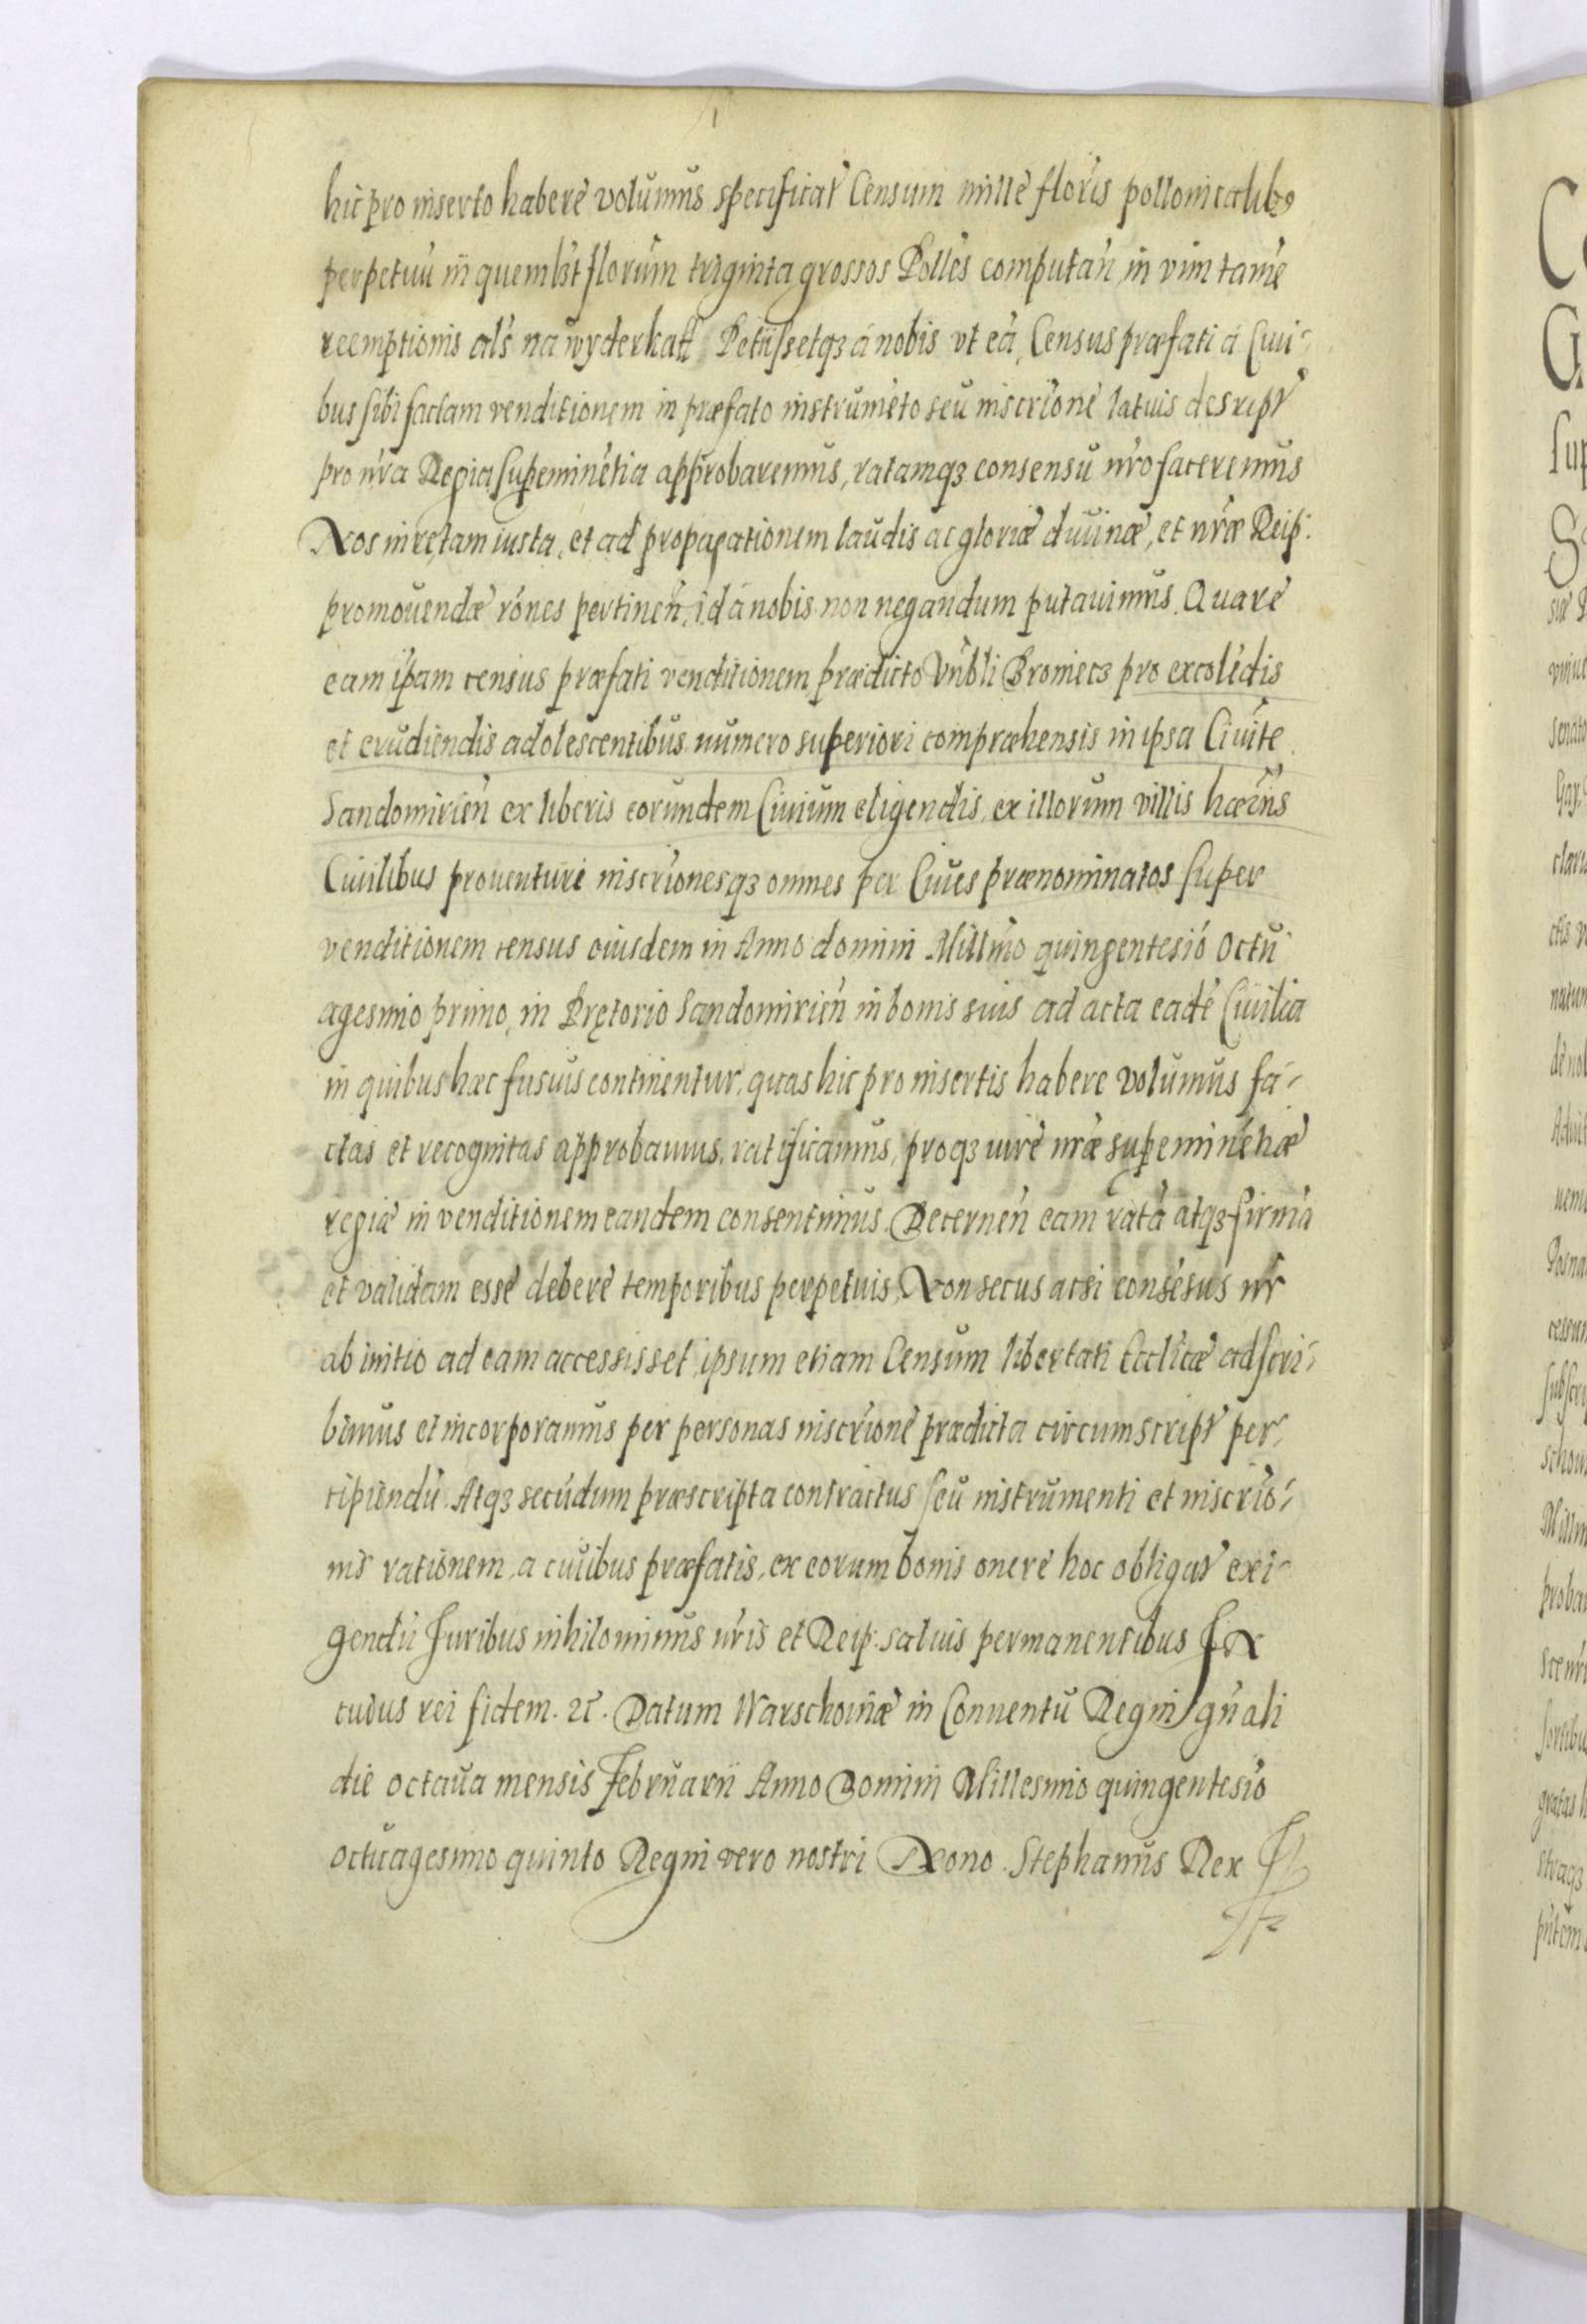 hic pro inserto haberè volumus specificat̃ Censum millè floris pollonicalibꝫ
perpetuũ in quemlꝫt florum triginta grossos Polles computañ in vim tamẽ
reemptionis als̃ na wyderkaff Petiissetqꝫ á nobis vt eã Census præfati á Ciui-
bus sibi factam venditionem in præfato instrumẽto seu inscrionẽ latuis descript̃
pro nr̃a Regia supeminẽtia approbaremus, ratamqꝫ consensu nr̃o faceremus
Nos in re tam iusta, et ad propagationem laudis ac gloriæ diuinæ, et nr̃æ Reip:
promouendæ rõnes pertineñ, id á nobis non negandum putauimus. Quarè
eam ipam census præfati venditionem prædicto Vñbli Proniecz pro excolẽdis
et erudiendis adolescentibus numero superiori compræhensis in ipsa Ciuitẽ
Sandomirień ex liberis eorundem Ciuium eligendis, ex illorum villis hæcñs
Ciuilibus prouenturi inscrionesqꝫ omnes per Ciues prænominatos super
venditionem census eiusdem in Anno domini Millmo quingentesiõ Octu
agesimo primo, in Prętorio Sandomirień in bonis suis ad acta eadẽ Ciuilia
in quibus hæc fusuis continentur, quas hic pro insertis habere volumus fa-
ctas et recognitas approbamus, ratificamus, proqꝫ iurè nr̃æ supeminẽtiæ
regiæ in venditionem eandem consentimus. Decerneñ eam ratã atqꝫ firmã
et validam essè deberè temporibus perpetuis, Non secus acsi consẽsus nr̃
ab initio ad eam accessisset, ipsum etiam Censum libertati Ecclicæ adscri-
bimus et incorporamus per personas inscrionè prædicta circumscript̃ per-
cipiendũ. Atqꝫ secũdum præscripta contractus seu instrumenti et inscrio-
nis rationem, a ciuibus præfatis, ex eorum bonis onerè hoc obligat̃ exi-
gendũ Juribus nihilominus nr̃is et Reip: saluis permanentibus In
cuius rei fidem. ꝛc̃. Datum Warschouiæ in Conuentu Regni gñali
die octaua mensis Februarii Anno Domini Millesimo quingentesiõ
octuagesimo quinto Regni vero nostri Nono. Stephanus Rex